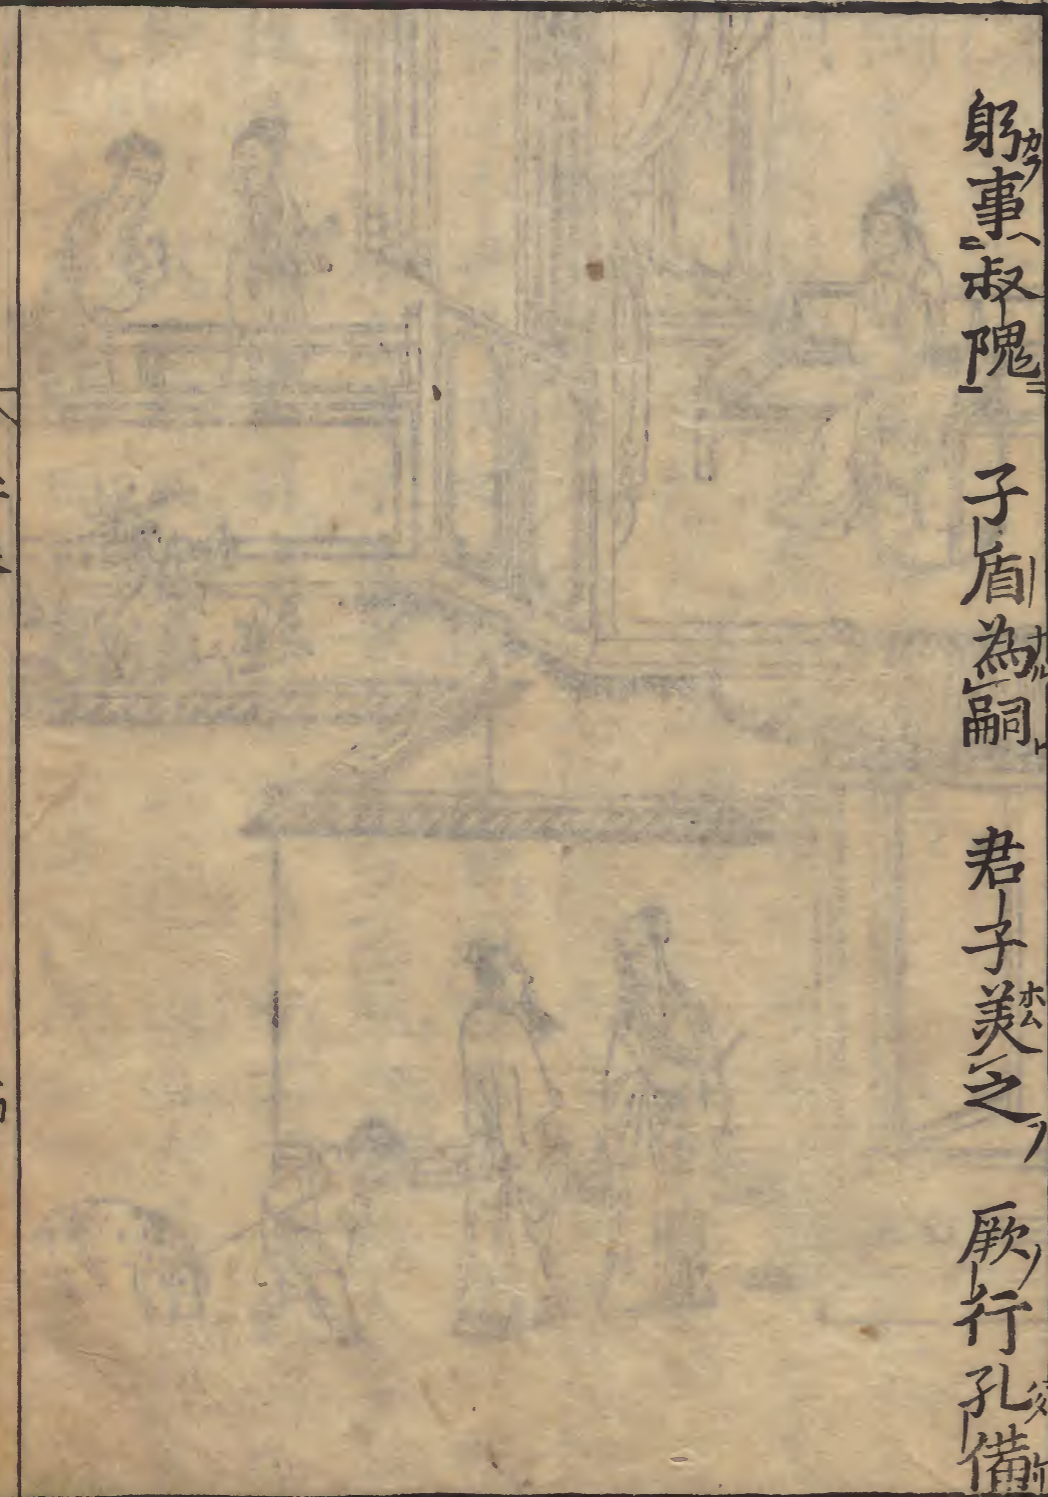 躬事叔隗　子盾為嗣　君子美之　厥行孔備